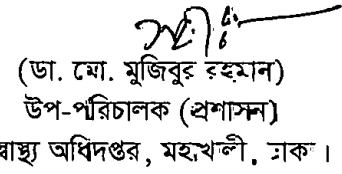 (ডা. মো. মুজিবুর রহমান)
উপ-পরিচালক (প্রশাসন)
বাস্থ্য অধিদপ্তর, মহাখালী, ঢাকা।